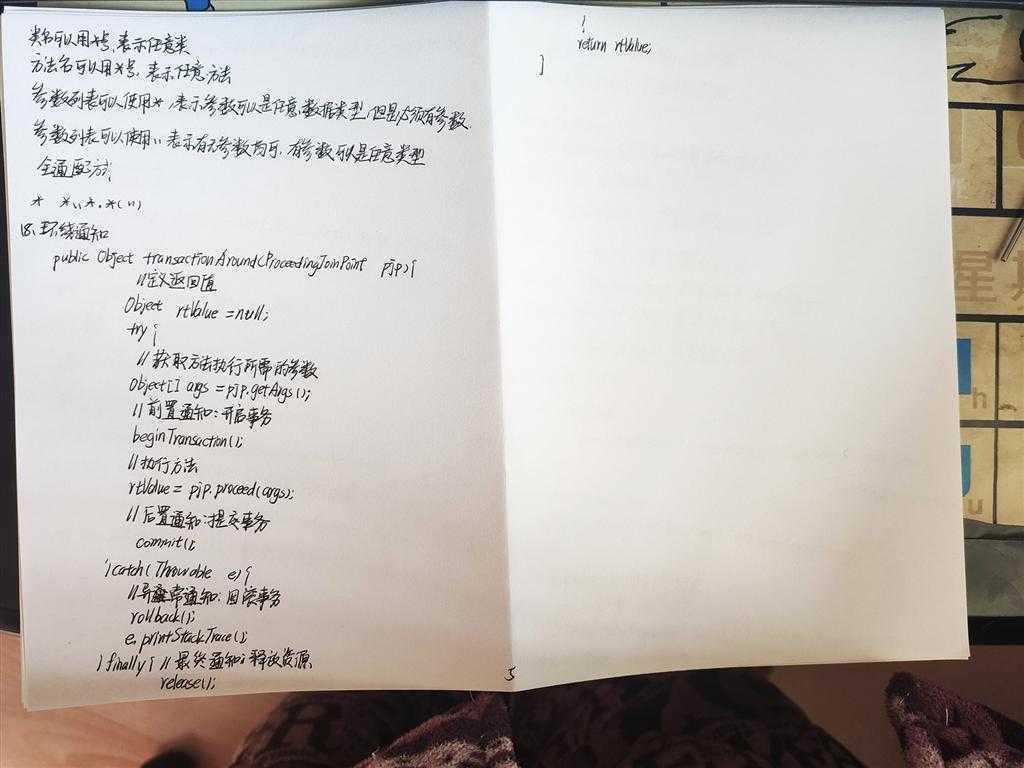 类名可以用*号,表示任意类
方法名可以用*号,表示任意方法
参数列表可以使用*,表示参数可以是任意数据类型,但是必须有参数.
参数列表可以使用..表示有无参数均可,有参数可以是任意类型
全通配方式
* *..*.*(..)
18.环绕通知
public Object transactionAround(ProceedingJoinPoint pjp){
//定义返回值
Object rtValue =null;
try{
//获取方法执行所需的参数
Object[] args =pjp.getArgs();
//前置通知:开启事务
beginTransaction();
//执行方法
rtValue= pjp.proceed(args);
//后置通知:提交事务
commit();
}catch(Throwable e){
//异常通知:回滚事务
rollback();
e.printStackTrace();
}finally{ //最终通知:释放资源
release();
5
}
return rtValue;
}